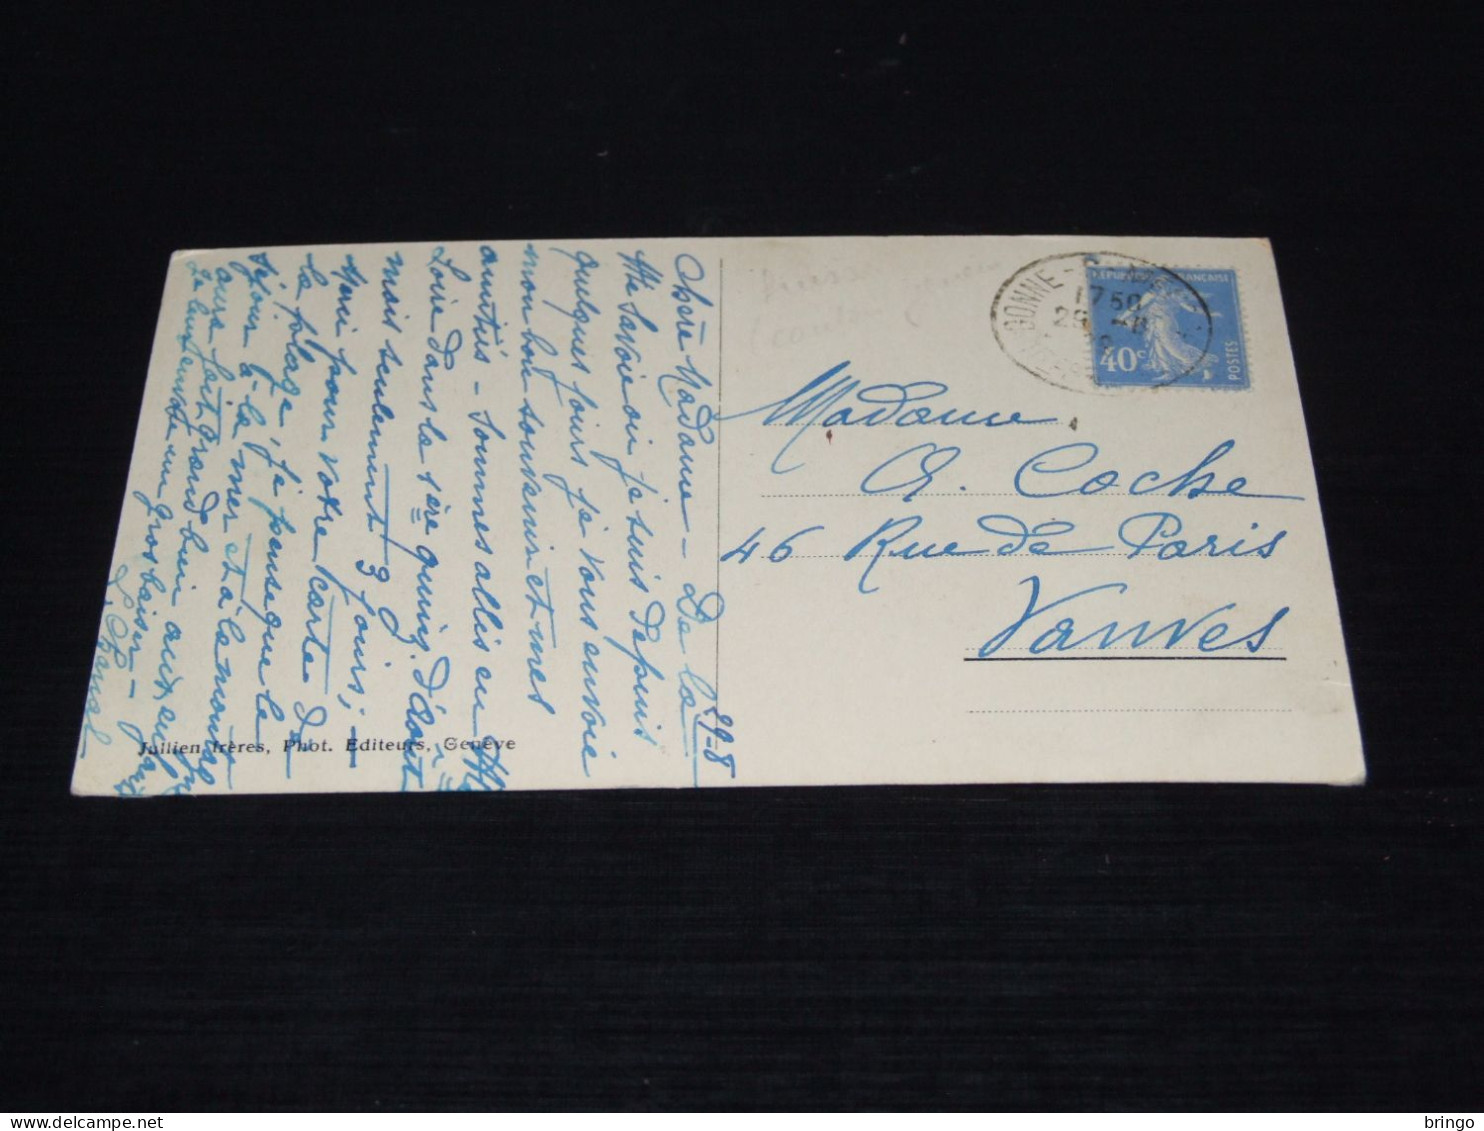 29-8
Chère Madame - De la
Hte Savoie où je suis depuis
quelques jours je vous envoie
mon bon souvenir et mes
amitiés - Sommes allés en Hte
Loire dans la 1ère quinz. d'août
mais seulement 9 jours ;
merci pour votre carte de
la plage, je pense que le
séjour à la mer et à la montagne
aura fait grand bien aux enfants
Je les embrasse
L. Chanal
Jullien frères, Phot. Editeurs, Genève
BONNE-
17 50
40c
REPUBLIQUE FRANÇAISE
POSTES
Madame
A. Coche
46 Rue de Paris
Vanves
bringo